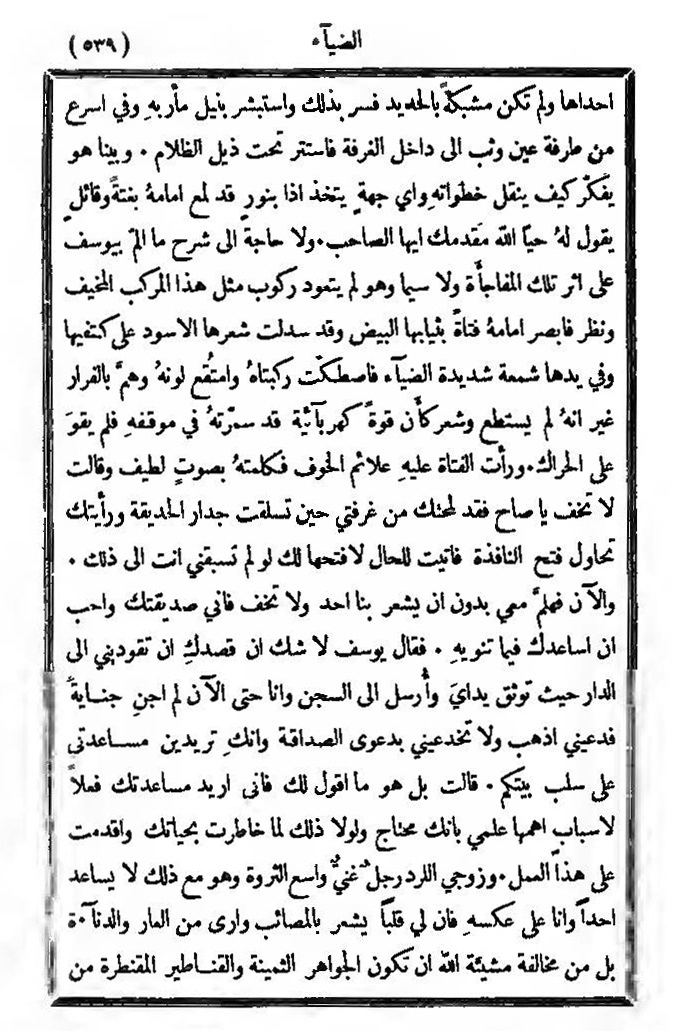 الضيآء (٥٣٩)
احداها ولم تكن مشبكةً بالحديد فسر بذلك واستبشر بنيل مأربهِ وفي اسرع
من طرفة عين وثب الى داخل الغرفة فاستتر تحت ذيل الظلام . وبينا هو
يفكّر كيف ينقل خطواتهِ واي جهةٍ يتخذ اذا بنورٍ قد لمع امامهُ بغتةً وقائلٍ
يقول لهُ حيّا الله مقدمك ايها الصاحب . ولا حاجة الى شرح ما المّ بيوسف
على اثر تلك المفاجأة ولا سيما وهو لم يتعود ركوب مثل هذا المركب المخيف
ونظر فابصر امامهُ فتاةً بثيابها البيض وقد سدلت شعرها الاسود على كتفيها
وفي يدها شمعة شديدة الضيآء فاصطكّت ركبتاهُ وامتُقع لونهُ وهمَّ بالفرار
غير انهُ لم يستطع وشعر كأن قوةً كهربآئيّة قد سمّرتهُ في موقفهِ فلم يقوَ
على الحراك . ورأت الفتاة عليهِ علائم الخوف فكلمتهُ بصوتٍ لطيف وقالت
لا تخف يا صاح فقد لمحتك من غرفتي حين تسلقت جدار الحديقة ورأيتك
تحاول فتح النافذة فاتيت للحال لافتحها لك لو لم تسبقني انت الى ذلك .
والآن فهلمَّ معي بدون ان يشعر بنا احد ولا تخف فاني صديقتك واحب
ان اساعدك فيما تنويهِ . فقال يوسف لا شك ان قصدكِ ان تقوديني الى
الدار حيث توثق يدايَ وأُرسل الى السجن وانا حتى الآن لم اجنِ جنايةً
فدعيني اذهب ولا تخدعيني بدعوى الصداقة وانكِ تريدين مساعدتي
على سلب بيتكم . قالت بل هو ما اقول لك فاني اريد مساعدتك فعلاً
لاسباب اهمها علمي بانك محتاج ولولا ذلك لما خاطرت بحياتك واقدمت
على هذا العمل . وزوجي اللرد رجلٌ غنيٌّ واسع الثروة وهو مع ذلك لا يساعد
احداً وانا على عكسهِ فان لي قلباً يشعر بالمصائب وارى من العار والدنآءة
بل من مخالفة مشيئة الله ان تكون الجواهر الثمينة والقناطير المقنطرة من